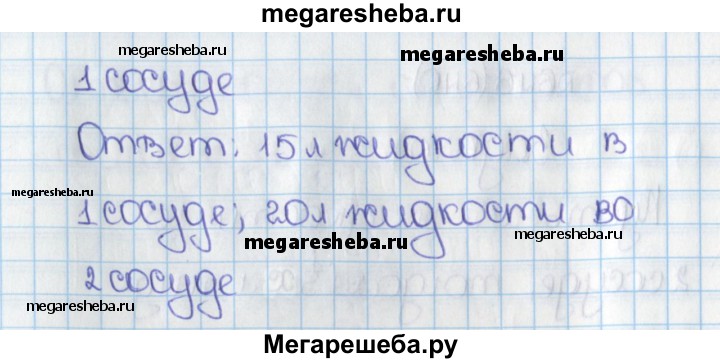 megaresheba.ru
megaresheba.ru megaresheba.ru
1 сосуде
Ответ: 15 л жидкости в
megaresheba.ru
1 сосуде; 20 л жидкости во
megaresheba.ru megaresheba.ru
2 сосуде
megaresheba.ru
Мегарешеба.ру